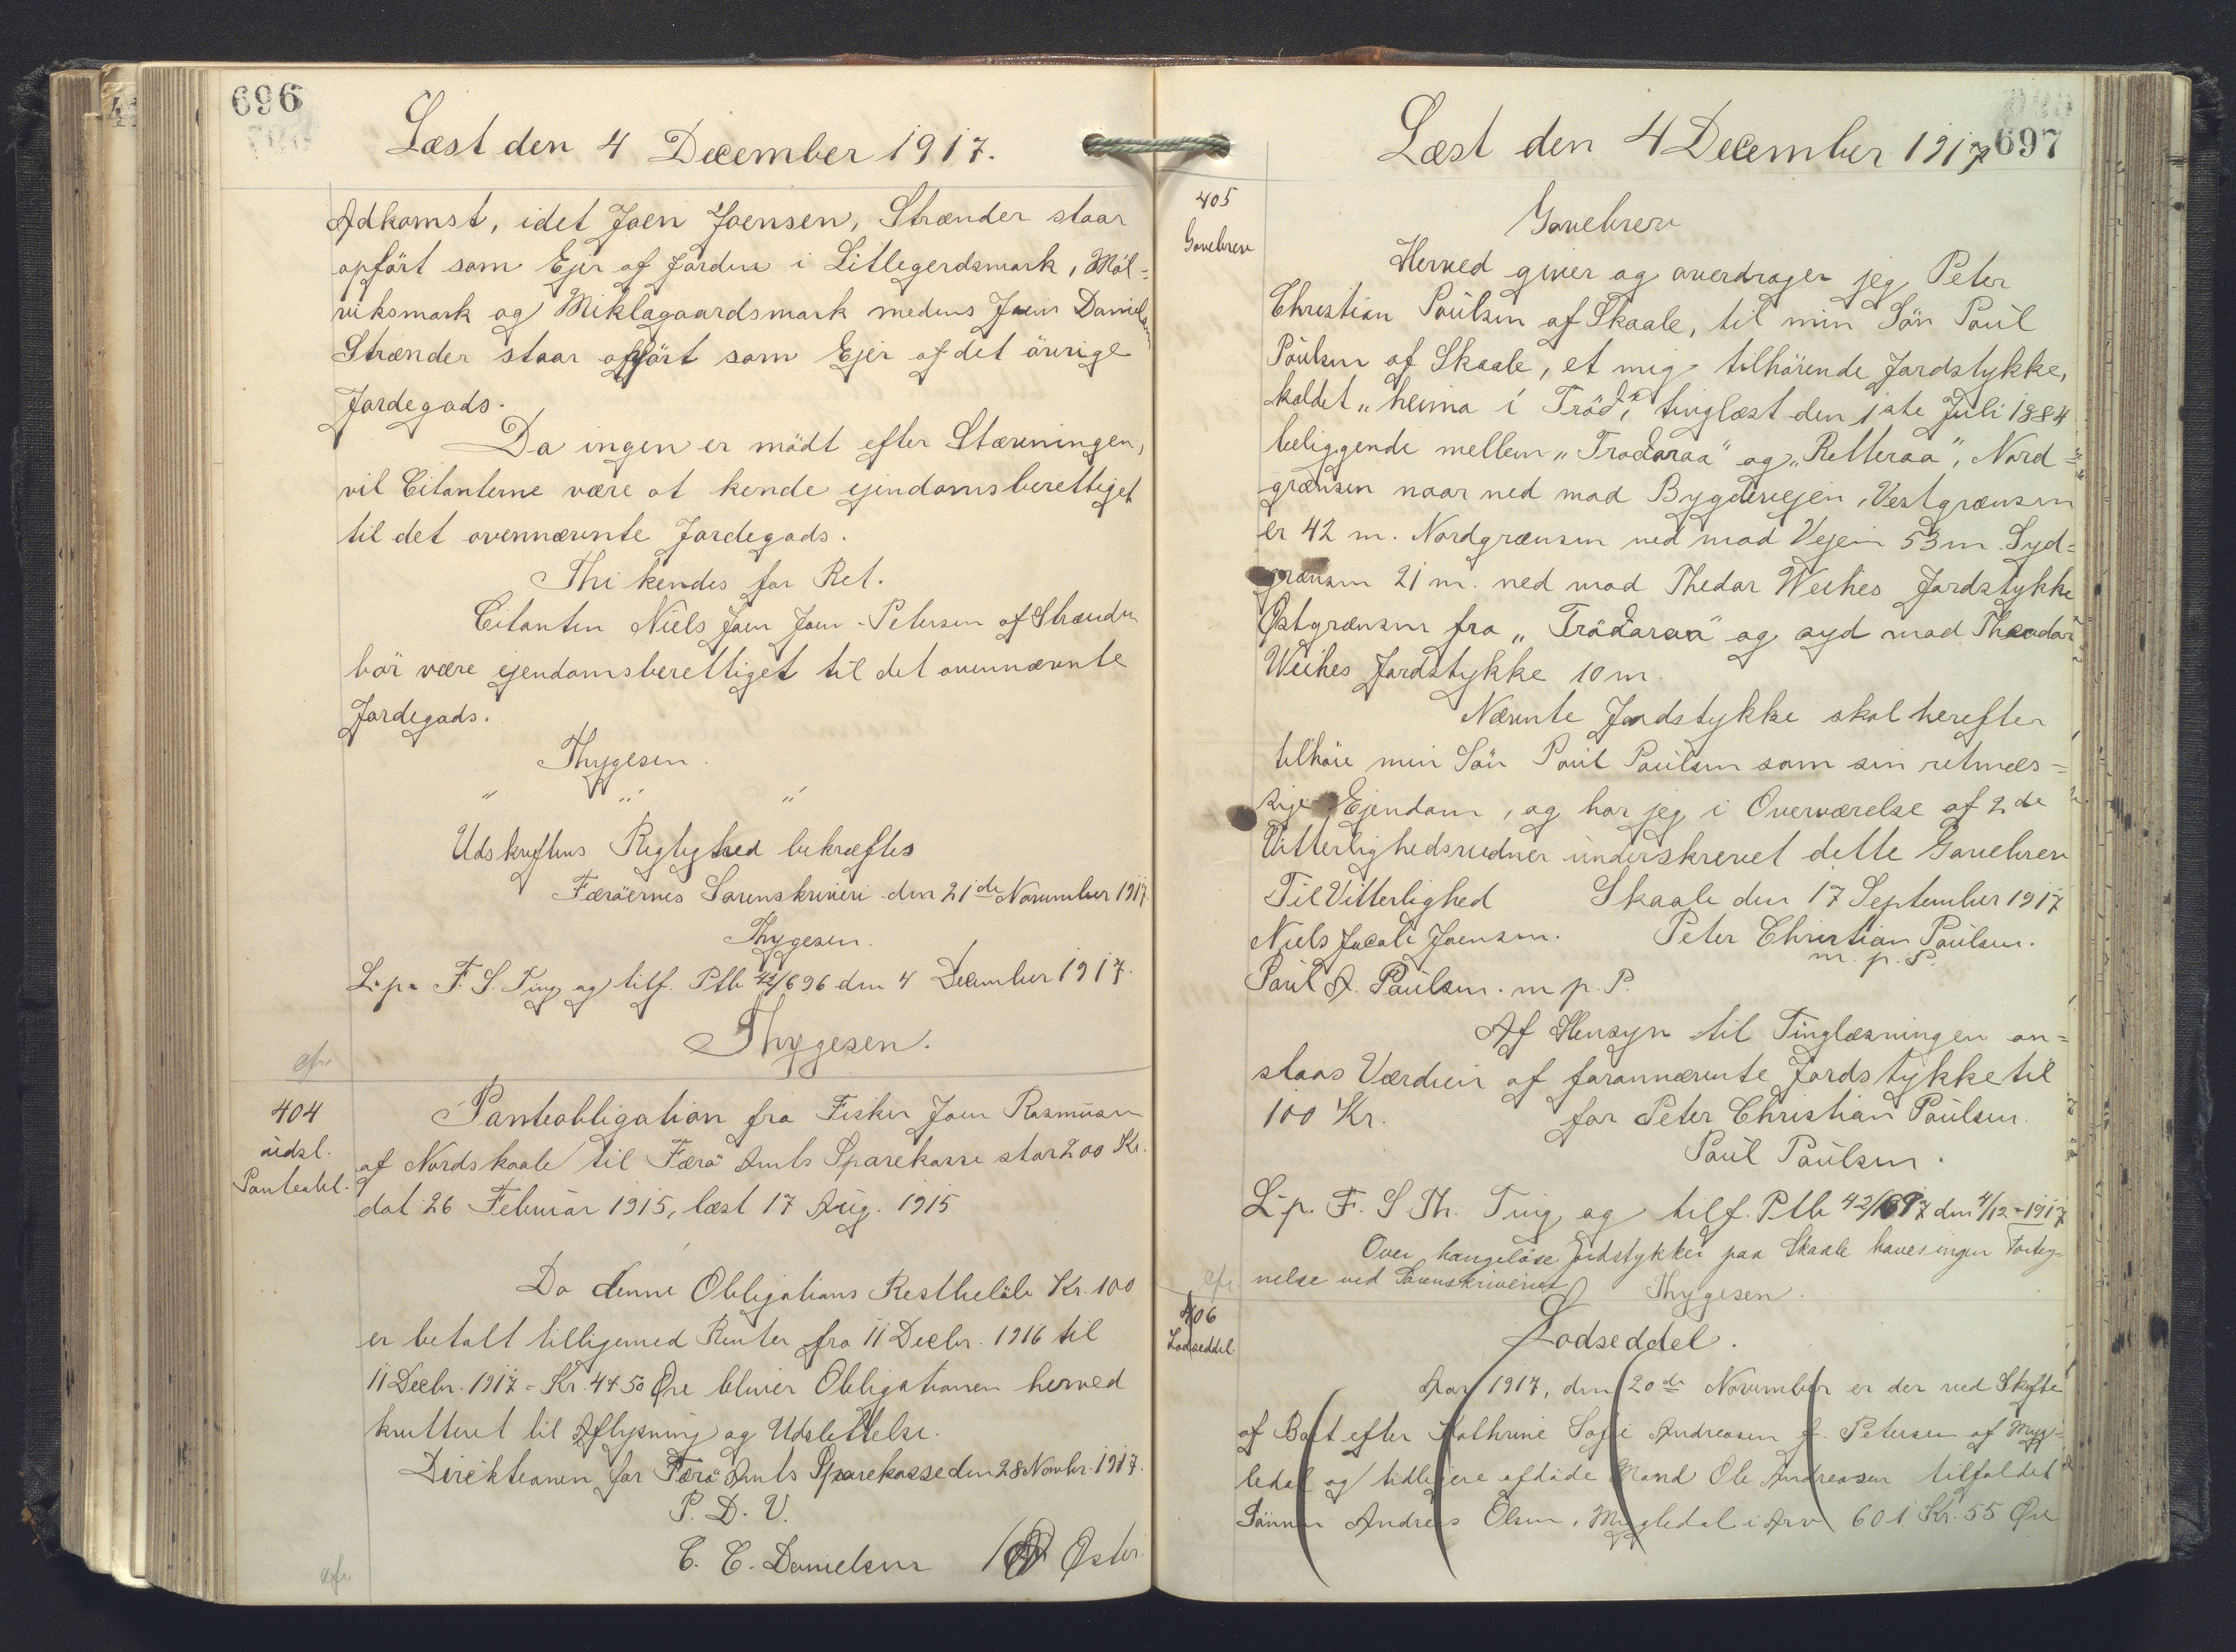 696
Læst den 4 December 1917.
Adkomst, idet Joen Joensen, Strænder staar
opført som Ejer af Jorden i Litlegerdsmark, Møl=
viksmark og Miklagaardsmark medens Joen Danielsen
Strænder staar opført som Ejer af det øvrige
Jordegods.
Da ingen er mødt efter Stævningen,
vil Citanterne være at kende ejendomsberettiget
til det ovennævnte Jordegods.
Thi kendes for Ret.
Citanten Niels Joen Joen-Petersen af Strænder
bør være ejendomsberettiget til det ovennævnte
Jordegods.
Thygesen.
" " "
Udskriftens Rigtighed bekræftes
Færøernes Sorenskriveri den 21de November 1917.
Thygesen.
L. p. F. S. Ting og tilf. Ptb 42/696 den 4 December 1917.
Thygesen.
cfr.
404
udsl.
Panteobl.
Panteobligation fra Fisker Joen Rasmusen
af Nordskaale til Færø Amts Sparekasse stor 200 Kr.
dat 26 Februar 1915, læst 17 Aug. 1915
Da denne Obligations Restbeløb Kr. 100
er betalt tilligemed Renter fra 11 Decbr. 1916 til
11 Decbr. 1917 = Kr. 4 50 Øre bliver Obligationen herved
kvitteret til Aflysning og Udslettelse.
Direktionen for Færø Amts Sparekasse den 28 Novbr. 1917.
P. D. V.
C. C. Danielsen / Øster.
cfr.
Læst den 4 December 1917
697
405
Gavebrev
Gavebrev
Herved giver og overdrager jeg Peter
Christian Poulsen af Skaale, til min Søn Poul
Poulsen af Skaale, et mig tilhørende Jordstykke,
kaldet "heima i Trøð", tinglæst den 1ste Juli 1884
beliggende mellem "Trøðaraa" og "Retteraa", Nord=
grænsen naar ned mod Bygdevejen, Vestgrænsen
er 42 m. Nordgrænsen ned mod Vejen 53 m. Syd=
grænsen 21 m. ned mod Thedor Weihes Jordstykke
Østgrænsen fra "Trøðaraa" og syd mod Theodor
Weihes Jordstykke 10 m.
Nævnte Jordstykke skal herefter
tilhøre min Søn Poul Poulsen som sin retmæs=
sige Ejendom, og har jeg i Overværelse af 2de
Vitterlighedsvidner underskrevet dette Gavebrev
Til Vitterlighed Skaale den 17 September 1917
Niels Jacob Joensen. Peter Christian Poulsen.
m. p. P.
Poul A. Poulsen. m p. P.
Af Hensyn til Tinglæsningen an=
slaas Værdien af forannævnte Jordstykke til
100 Kr. for Peter Christian Poulsen.
Poul Poulsen.
L. p. F. S. Th. Ting og tilf. Ptb 42/697 den 4/12-1917
Over haugeløse Jordstykker paa Skaale haves ingen Forteg=
nelse ved Sorenskriveriet Thygesen.
cfr
406
Lodseddel.
Lodseddel.
Aar 1917, den 20de November er der ved Skifte
af Boet efter Kathrine Sofie Andreasen f. Petersen af Myg=
ledal og tidligere afdøde Mand Ole Andreasen tilfaldet
Sønnen Andreas Olsen, Mygledal i Arv 601 Kr. 55 Øre